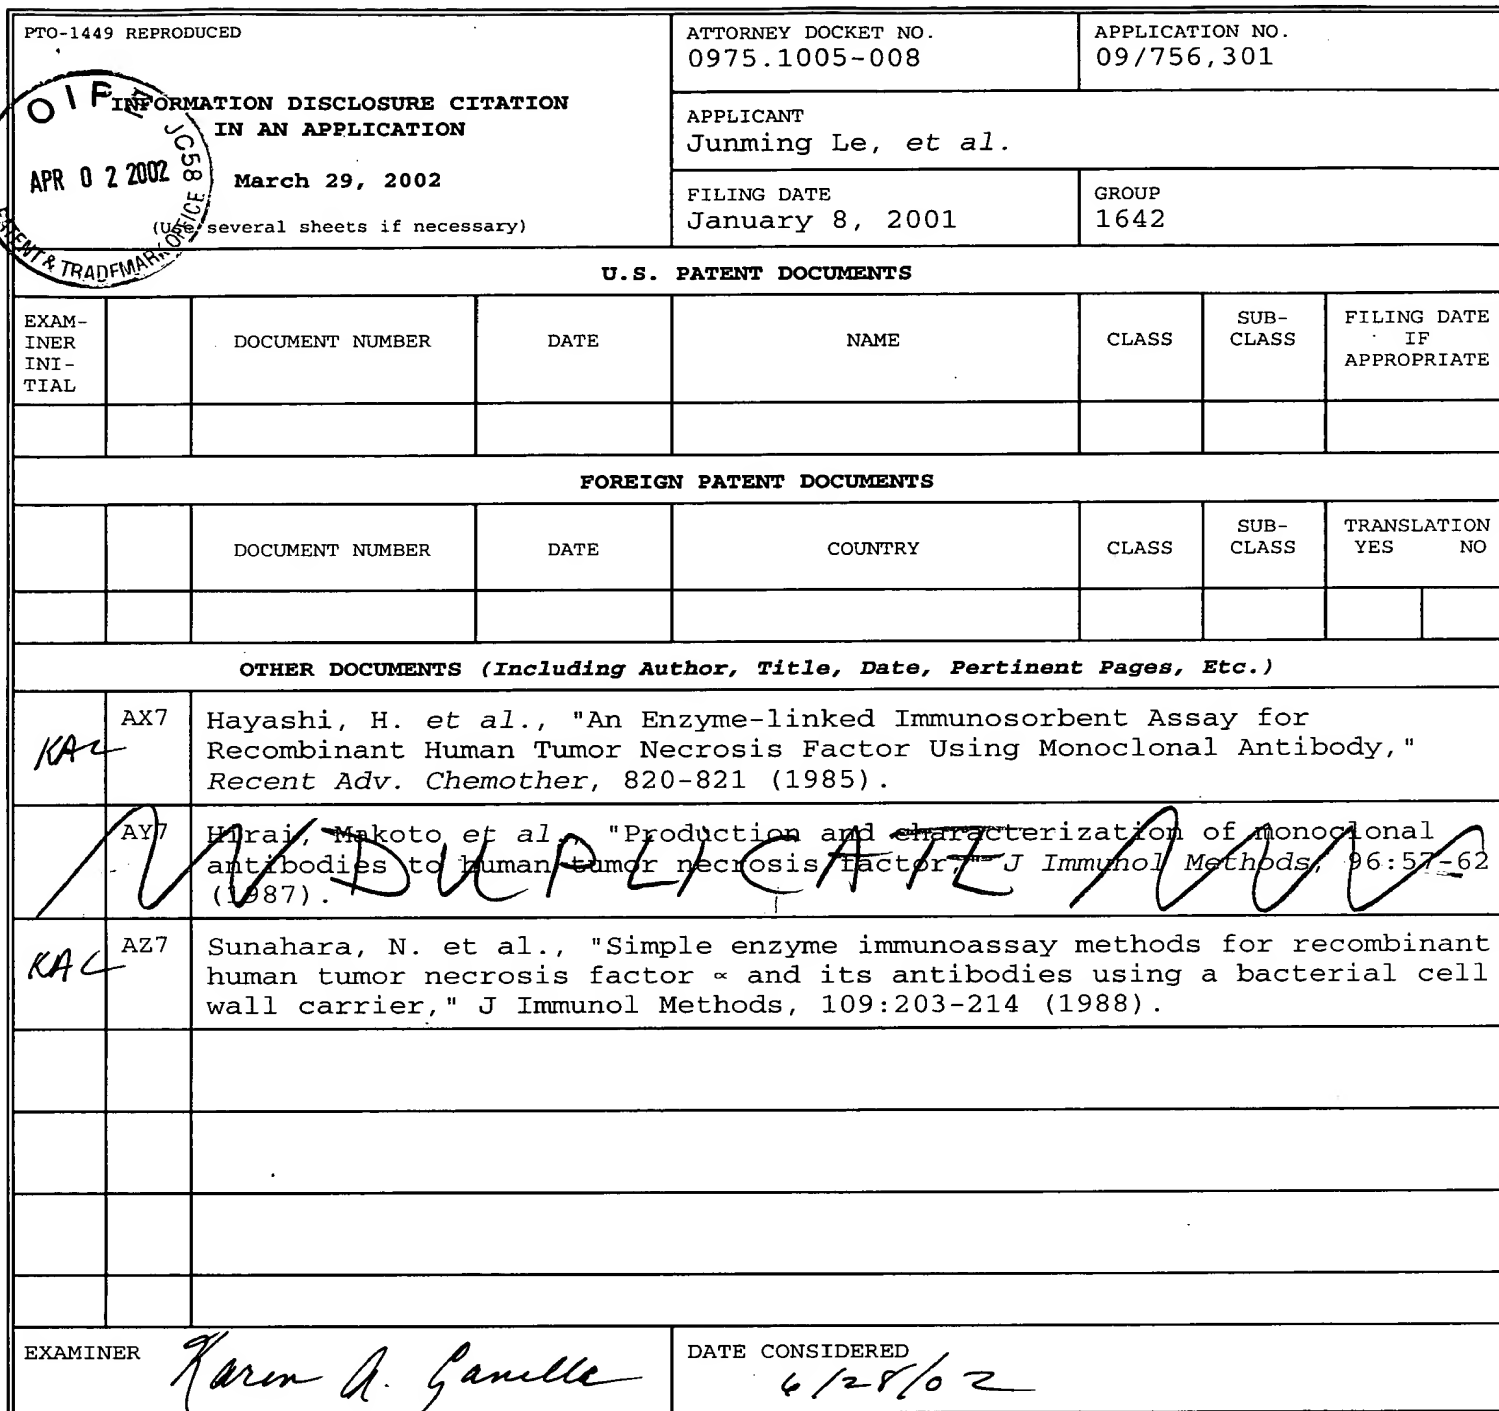 PTO-1449 REPRODUCED
INFORMATION DISCLOSURE CITATION
IN AN APPLICATION
March 29, 2002
(Use several sheets if necessary)
OIPE
JC58
APR 02 2002
PATENT & TRADEMARK OFFICE
ATTORNEY DOCKET NO.
0975.1005-008
APPLICATION NO.
09/756,301
APPLICANT
Junming Le, et al.
FILING DATE
January 8, 2001
GROUP
1642
U.S. PATENT DOCUMENTS
EXAM-
INER
INI-
TIAL
DOCUMENT NUMBER
DATE
NAME
CLASS
SUB-
CLASS
FILING DATE
IF
APPROPRIATE
FOREIGN PATENT DOCUMENTS
DOCUMENT NUMBER
DATE
COUNTRY
CLASS
SUB-
CLASS
TRANSLATION
YES NO
OTHER DOCUMENTS (Including Author, Title, Date, Pertinent Pages, Etc.)
KAC
AX7
Hayashi, H. et al., "An Enzyme-linked Immunosorbent Assay for
Recombinant Human Tumor Necrosis Factor Using Monoclonal Antibody,"
Recent Adv. Chemother, 820-821 (1985).
AY7
Hirai, Makoto et al., "Production and characterization of monoclonal
antibodies to human tumor necrosis factor," J Immunol Methods, 96:57-62
(1987).
DUPLICATE
KAC
AZ7
Sunahara, N. et al., "Simple enzyme immunoassay methods for recombinant
human tumor necrosis factor ∝ and its antibodies using a bacterial cell
wall carrier," J Immunol Methods, 109:203-214 (1988).
EXAMINER
Karen A.
DATE CONSIDERED
6/28/02